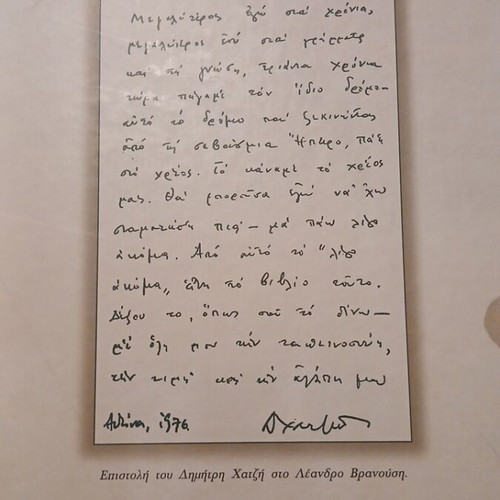 Μεγαλύτερος ἐγώ στά χρόνια,
μεγαλύτερος ἐσύ στά γράμματα
καί τή γνώση, τριάντα χρόνια
τώρα πάγαμε τόν ἴδιο δρόμο—
αὐτό τό δρόμο πού ξεκινώντας
ἀπό τή σεβάσμια Ἤπειρο, πάει
στό χρέος. Τό κάναμε τό χρέος
μας. Θά μποροῦσα ἐγώ νά 'χω
σταματήσει πιά — μά πάω λίγο
ἀκόμα. Ἀπό αὐτό τό "λίγο
ἀκόμα" εἶναι τό βιβλίο τοῦτο.
Δέξου το, ὅπως σοῦ τό δίνω—
μέ ὅλη μου τήν ταπεινοσύνη,
τήν τιμή καί τήν ἀγάπη μου
Ἀθήνα, 1976
Επιστολή του Δημήτρη Χατζή στο Λέανδρο Βρανούση.